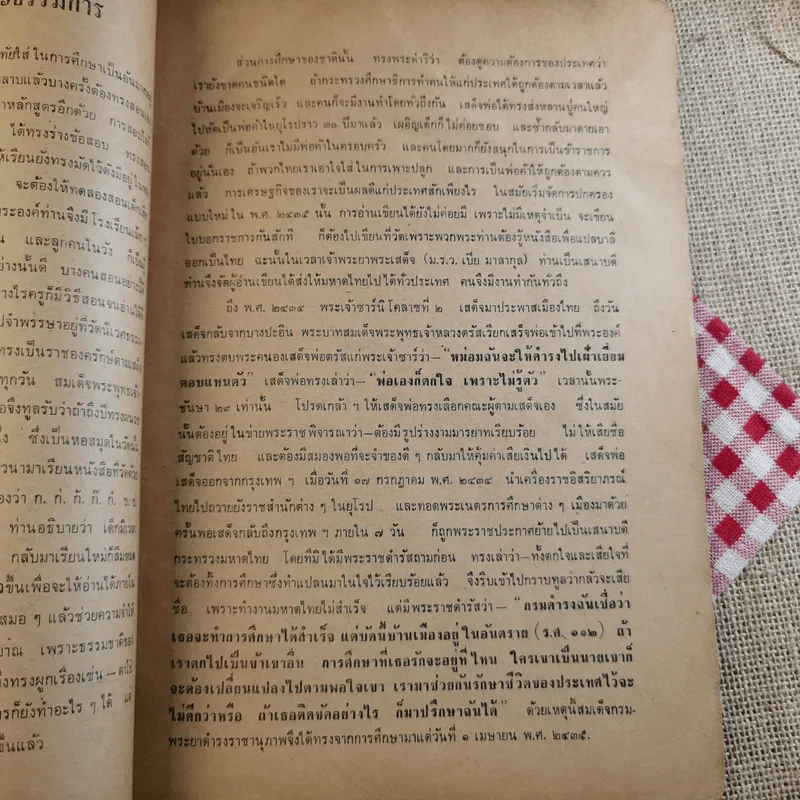 รธรรมการ
ทัยใส่ในการศึกษาเป็นอันมาก
ลาบแล้วบางครั้งต้องทรงสอน
าหลักสูตรอีกด้วย การสอบไล่
ได้ทรงร่างข้อสอบ
ห้เรียนยังทรงมัดไว้ดังมีอยู่ใน
จะต้องให้ทดลองสอนเด็ก
ระองค์ท่านจึงมีโรงเรียนเด็ก
น และลูกคนในวัง ก็เป็น
ย่างนั้นดี บางคนสอนอย่างนี้
างไรครูก็มีวิธีสอนจนอ่านได้
ปจำพรรษาอยู่ที่วัดนิเวศธรรม
ทรงเป็นราชองครักษ์ตามเสด็จ
ทุกวัน สมเด็จพระพุทธเจ้า
อจึงทูลรับว่าถ้าถึงปีทรง
ง ซึ่งเป็นหอสมุดในวัดนั้น
วนามาเรียนหนังสือที่วัดด้วย
องว่า ก. ก่. ก้. ก๊. ก๋. ข. ข่.
ท่านอธิบายว่า เด็กมีเวลา
กลับมาเรียนใหม่ก็ลืมหมด
วขึ้นเพื่อจะให้อ่านได้ภายใน
สมอ ๆ แล้วช่วยความจำให้
ย่ำณ เพราะธรรมชาติของ
งทรงผูกเรื่องเช่น—ตาโร่
ารก็ยังทำอะไร ๆ ได้ แต่
ขึ้นแล้ว
ส่วนการศึกษาของชาตินั้น ทรงพระดำริว่า ต้องดูความต้องการของประเทศว่า
เรายังขาดคนชนิดใด ถ้ากระทรวงศึกษาธิการทำคนให้แก่ประเทศได้ถูกต้องตามเวลาแล้ว
บ้านเมืองจะเจริญเร็ว และคนก็จะมีงานทำโดยทั่วถึงกัน เสด็จพ่อได้ทรงส่งหลานปู่คนใหญ่
ไปหัดเป็นพ่อค้าในยุโรปราว ๓๐ ปีมาแล้ว เผอิญเด็กก็ไม่ค่อยชอบ และซ้ำกลับมาตายเอา
ด้วย ก็เป็นอันเราไม่มีพ่อค้าในครอบครัว และคนโดยมากก็ยังสนุกในการเป็นข้าราชการ
อยู่นั่นเอง ถ้าพวกไทยเราเอาใจใส่ในการเพาะปลูก และการเป็นพ่อค้าให้ถูกต้องตามควร
แล้ว การเศรษฐกิจของเราจะเป็นผลดีแก่ประเทศสักเพียงไร ในสมัยเริ่มจัดการปกครอง
แบบใหม่ใน พ.ศ. ๒๔๓๕ นั้น การอ่านเขียนได้ยังไม่ค่อยมี เพราะไม่มีเหตุจำเป็น จะเขียน
ใบบอกราชการกันสักที ก็ต้องไปเขียนที่วัดเพราะพวกพระท่านต้องรู้หนังสือเพื่อแปลบาลี
ออกเป็นไทย ฉะนั้นในเวลาเจ้าพระยาพระเสด็จ (ม.ร.ว. เปีย มาลากุล) ท่านเป็นเสนาบดี
ท่านจึงจัดผู้อ่านเขียนได้ส่งให้มหาดไทยไปได้ทั่วประเทศ คนจึงมีงานทำกันทั่วถึง
ถึง พ.ศ. ๒๔๓๔ พระเจ้าซาร์นิโคลาซที่ ๒ เสด็จมาประพาสเมืองไทย ถึงวัน
เสด็จกลับจากบางปะอิน พระบาทสมเด็จพระพุทธเจ้าหลวงตรัสเรียกเสร็จพ่อเข้าไปที่พระองค์
แล้วทรงตบพระคนองเสด็จพ่อตรัสแก่พระเจ้าซาร์ว่า—“หม่อมฉันจะให้ดำรงไปเฝ้าเยี่ยม
ตอบแทนตัว” เสด็จพ่อทรงเล่าว่า—“พ่อเองก็ตกใจ เพราะไม่รู้ตัว” เวลานั้นพระ-
ชันษา ๒๙ เท่านั้น โปรดเกล้า ฯ ให้เสด็จพ่อทรงเลือกคณะผู้ตามเสด็จเอง ซึ่งในสมัย
นั้นต้องอยู่ในข่ายพระราชพิจารณาว่า—ต้องมีรูปร่างงามมารยาทเรียบร้อย ไม่ให้เสียชื่อ
สัญชาติไทย และต้องมีสมองพอที่จะจำของดี ๆ กลับมาให้คุ้มค่าเสียเงินไปได้ เสด็จพ่อ
เสด็จออกจากกรุงเทพ ฯ เมื่อวันที่ ๑๗ กรกฎาคม พ.ศ. ๒๔๓๔ นำเครื่องราชอิสริยาภรณ์
ไทยไปถวายยังราชสำนักต่าง ๆ ในยุโรป และทอดพระเนตรการศึกษาต่าง ๆ เมืองมาด้วย
ครั้นพอเสด็จกลับถึงกรุงเทพ ฯ ภายใน ๗ วัน ก็ถูกพระราชประกาศย้ายไปเป็นเสนาบดี
กระทรวงมหาดไทย โดยที่มิได้มีพระราชดำรัสถามก่อน ทรงเล่าว่า—ทั้งตกใจและเสียใจที่
จะต้องทิ้งการศึกษาซึ่งทำแปลนมาในใจไว้เรียบร้อยแล้ว จึงรีบเข้าไปกราบทูลว่ากลัวจะเสีย
ชื่อ เพราะทำงานมหาดไทยไม่สำเร็จ แต่มีพระราชดำรัสว่า—“กรมดำรงฉันเชื่อว่า
เธอจะทำการศึกษาได้สำเร็จ แต่บัดนี้บ้านเมืองอยู่ในอันตราย (ร.ศ. ๑๑๒) ถ้า
เราตกไปเป็นข้าเขาอื่น การศึกษาที่เธอรักจะอยู่ที่ไหน ใครเขาเป็นนายเขาก็
จะต้องเปลี่ยนแปลงไปตามพอใจเขา เรามาช่วยกันรักษาชีวิตของประเทศไว้จะ
ไม่ดีกว่าหรือ ถ้าเธอติดขัดอย่างไร ก็มาปรึกษาฉันได้” ด้วยเหตุนี้สมเด็จกรม-
พระยาดำรงราชานุภาพจึงได้ทรงจากการศึกษามาแต่วันที่ ๑ เมษายน พ.ศ. ๒๔๓๕.